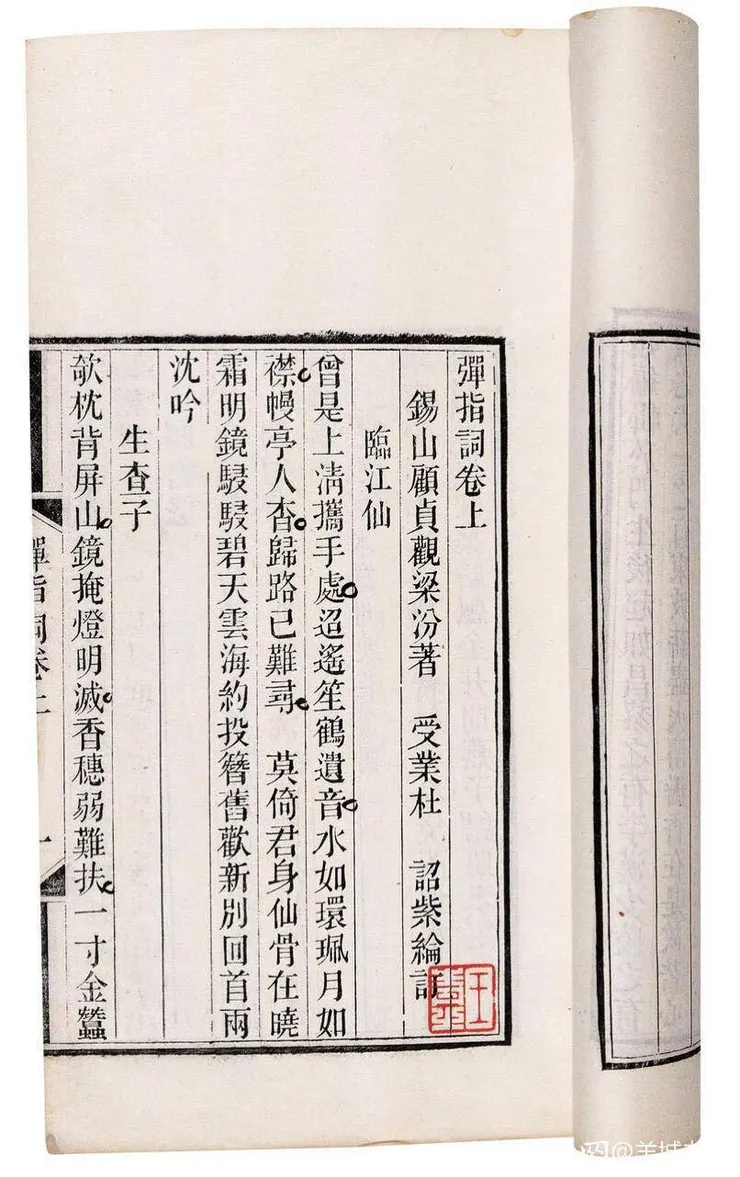 彈指詞卷上
錫山顧貞觀梁汾著　受業杜　詔紫綸訂
臨江仙
曾是上清攜手處迢遙笙鶴遺音水如環珮月如
襟幔亭人杳歸路已難尋　莫倚君身仙骨在曉
霜明鏡駸駸碧天雲海約投簪舊歡新別回首兩
沈吟
生查子
欹枕背屏山鏡掩燈明滅香穗弱難扶一寸金蠶
彈指詞卷上
一